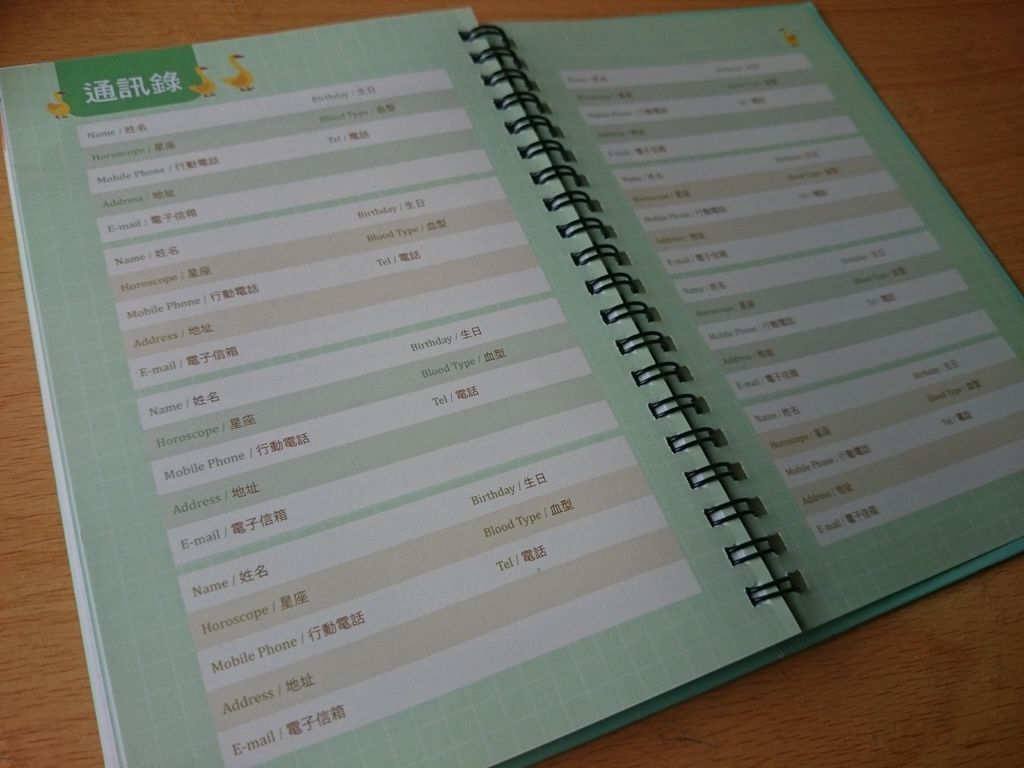 通訊錄
Name / 姓名 Birthday / 生日
Horoscope / 星座 Blood Type / 血型
Mobile Phone / 行動電話 Tel / 電話
Address / 地址
E-mail / 電子信箱
Name / 姓名 Birthday / 生日
Horoscope / 星座 Blood Type / 血型
Mobile Phone / 行動電話 Tel / 電話
Address / 地址
E-mail / 電子信箱
Name / 姓名 Birthday / 生日
Horoscope / 星座 Blood Type / 血型
Mobile Phone / 行動電話 Tel / 電話
Address / 地址
E-mail / 電子信箱
Name / 姓名 Birthday / 生日
Horoscope / 星座 Blood Type / 血型
Mobile Phone / 行動電話 Tel / 電話
Address / 地址
E-mail / 電子信箱
Name / 姓名 Birthday / 生日
Horoscope / 星座 Blood Type / 血型
Mobile Phone / 行動電話 Tel / 電話
Address / 地址
E-mail / 電子信箱
Name / 姓名 Birthday / 生日
Horoscope / 星座 Blood Type / 血型
Mobile Phone / 行動電話 Tel / 電話
Address / 地址
E-mail / 電子信箱
Name / 姓名 Birthday / 生日
Horoscope / 星座 Blood Type / 血型
Mobile Phone / 行動電話 Tel / 電話
Address / 地址
E-mail / 電子信箱
Name / 姓名 Birthday / 生日
Horoscope / 星座 Blood Type / 血型
Mobile Phone / 行動電話 Tel / 電話
Address / 地址
E-mail / 電子信箱